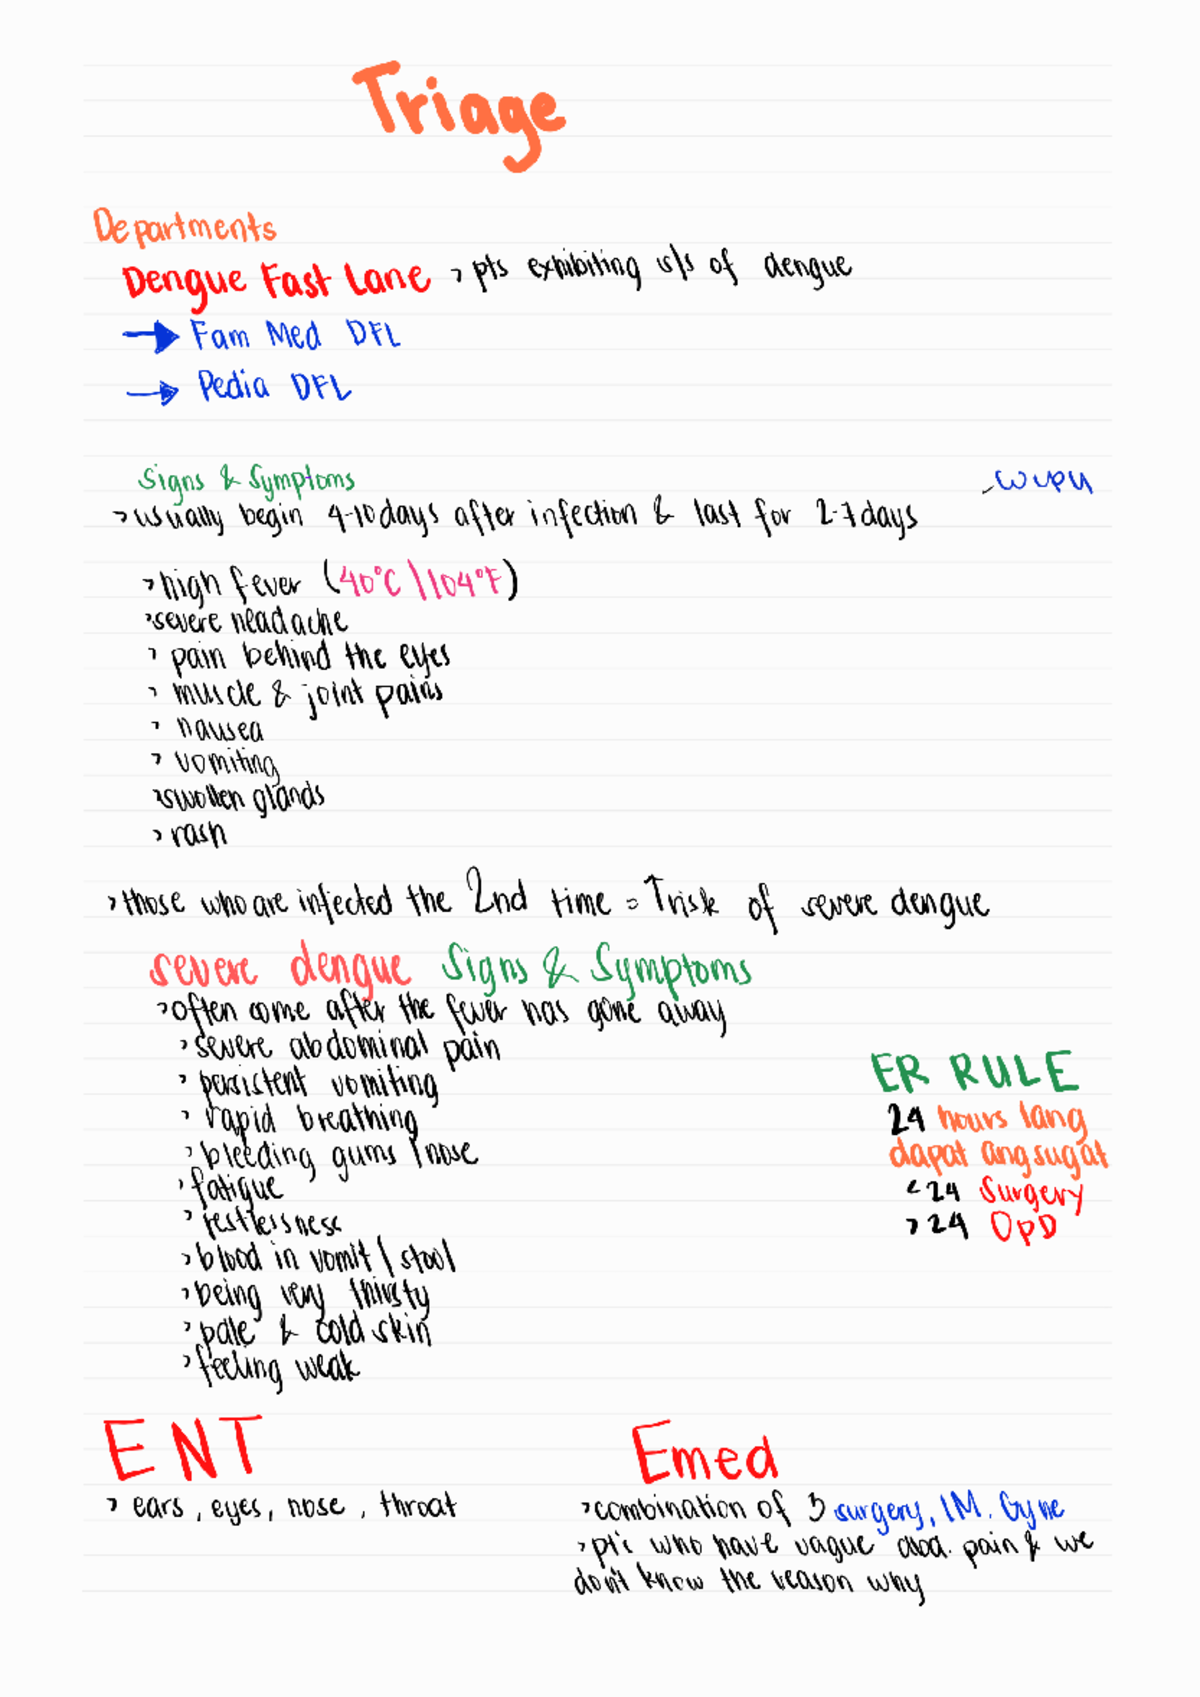 Triage
Departments
Dengue Fast Lane > pts exhibiting s/s of dengue
→ Fam Med DFL
→ Pedia DFL
Signs & Symptoms
> usually begin 4-10 days after infection & last for 2-7 days
> high fever (40°C \ 104°F)
> severe headache
> pain behind the eyes
> muscle & joint pains
> nausea
> vomiting
> swollen glands
> rash
> those who are infected the 2nd time = ↑ risk of severe dengue
severe dengue Signs & Symptoms
> often come after the fever has gone away
> severe abdominal pain
> persistent vomiting
> rapid breathing
> bleeding gums / nose
> fatigue
> restlessness
> blood in vomit / stool
> being very thirsty
> pale & cold skin
> feeling weak
ER RULE
24 hours lang
dapat ang sugat
<24 Surgery
>24 OPD
ENT
> ears, eyes, nose, throat
Emed
> combination of 3 surgery, IM. Gyne
> pti who have vague abd. pain & we
don't know the reason why